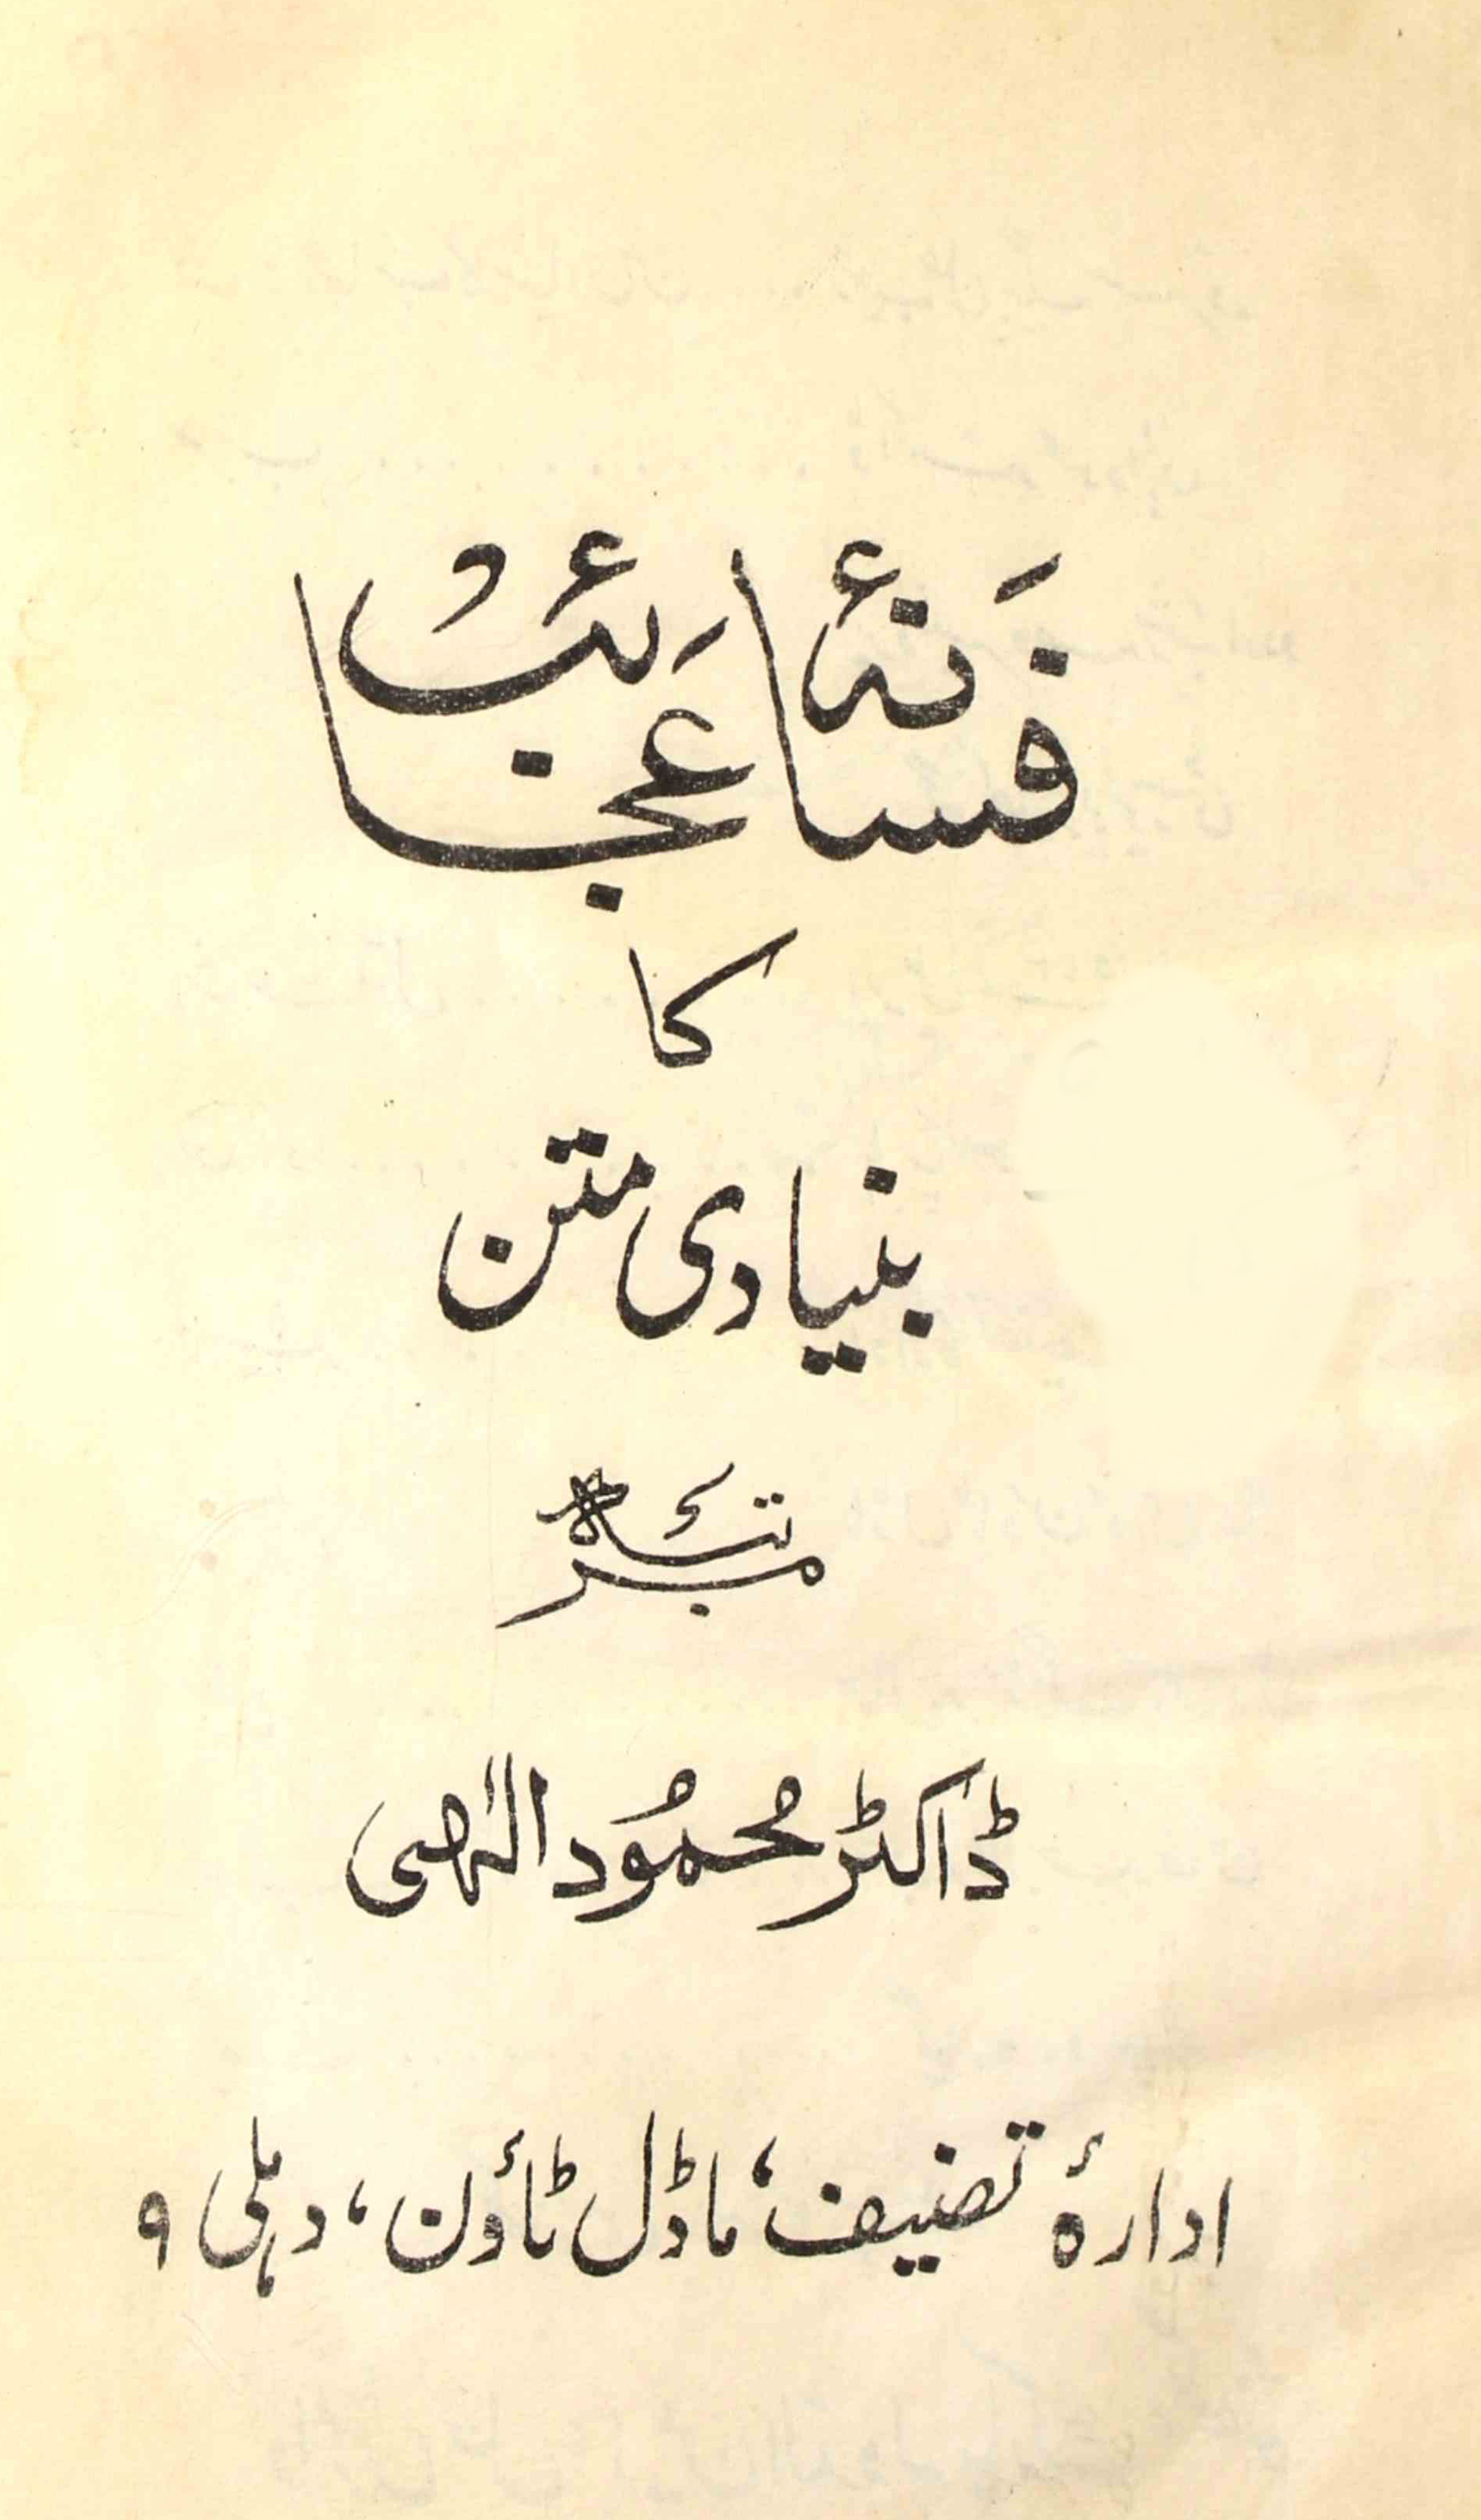 فسانۂ عجائب
کا
بنیادی متن
مرتبہ
ڈاکٹر محمود الٰہی
ادارۂ تصنیف، ماڈل ٹاؤن، دہلی ۹